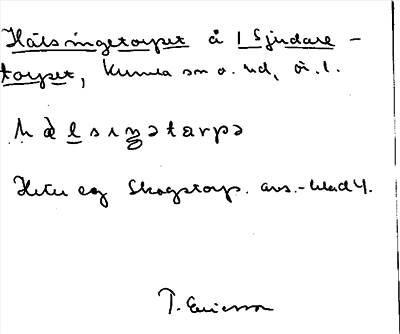 Hälsingetorpet å 1 Sjudare-
torpet, Kumla sn o. hd, ör. l.
hὰlsıŋətarpə
Heter eg Skogstorp. avs.-blad 4.
T. Ericsson